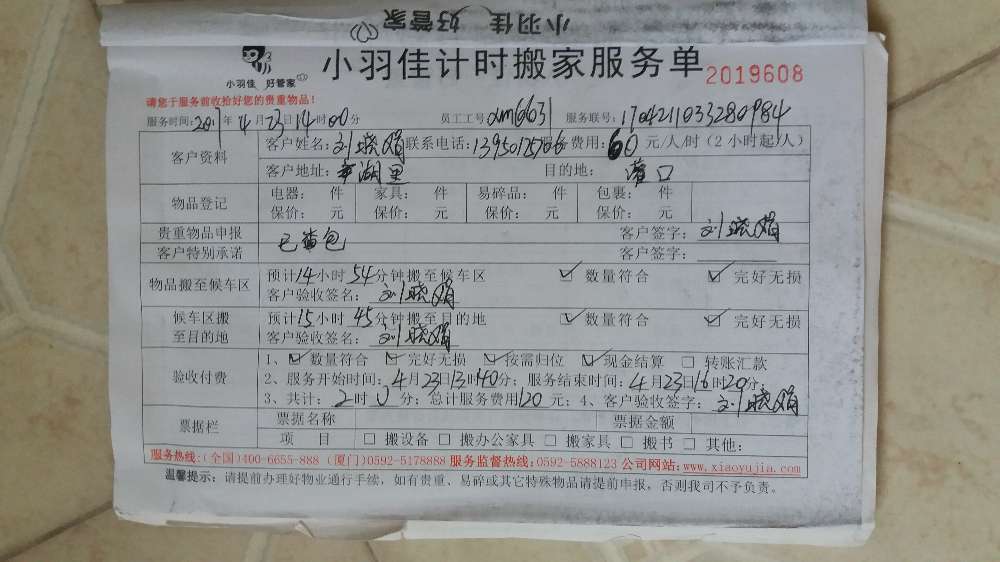 小羽佳 好管家
小羽佳 好管家
小羽佳计时搬家服务单 2019608
请您于服务前收拾好您的贵重物品！
服务时间：2017年4月23日14时00分 员工工号：xm6631 服务联号：1704211033280984
客户资料 客户姓名：刘晓娟 联系电话：13950125706 服务费用：60元/人/时（2小时起/人）
客户地址： 湖里 目的地：灌口
物品登记 电器： 件 家具： 件 易碎品： 件 包裹： 件
保价： 元 保价： 元 保价： 元 保价： 元
贵重物品申报 已 包 客户签字：刘晓娟
客户特别承诺 客户签字：
物品搬至候车区 预计14小时54分钟搬至候车区 ☑数量符合 ☑完好无损
客户验收签名：刘晓娟
候车区搬至目的地 预计15小时45分钟搬至目的地 ☑数量符合 ☑完好无损
客户验收签名：刘晓娟
验收付费 1、☑数量符合 ☑完好无损 ☑按需归位 ☑现金结算 □转账汇款
2、服务开始时间：4月23日13时40分；服务结束时间：4月23日16时20分；
3、共计：2时0分；总计服务费用120元；4、客户验收签字：刘晓娟
票据栏 票据名称 票据金额
项 目 □搬设备 □搬办公家具 □搬家具 □搬书 □其他：
服务热线：(全国)400-6655-888 (厦门)0592-5178888 服务监督热线：0592-5888123 公司网站：www.xiaoyujia.com
温馨提示：请提前办理好物业通行手续，如有贵重、易碎或其它特殊物品请提前申报，否则我司不予负责。